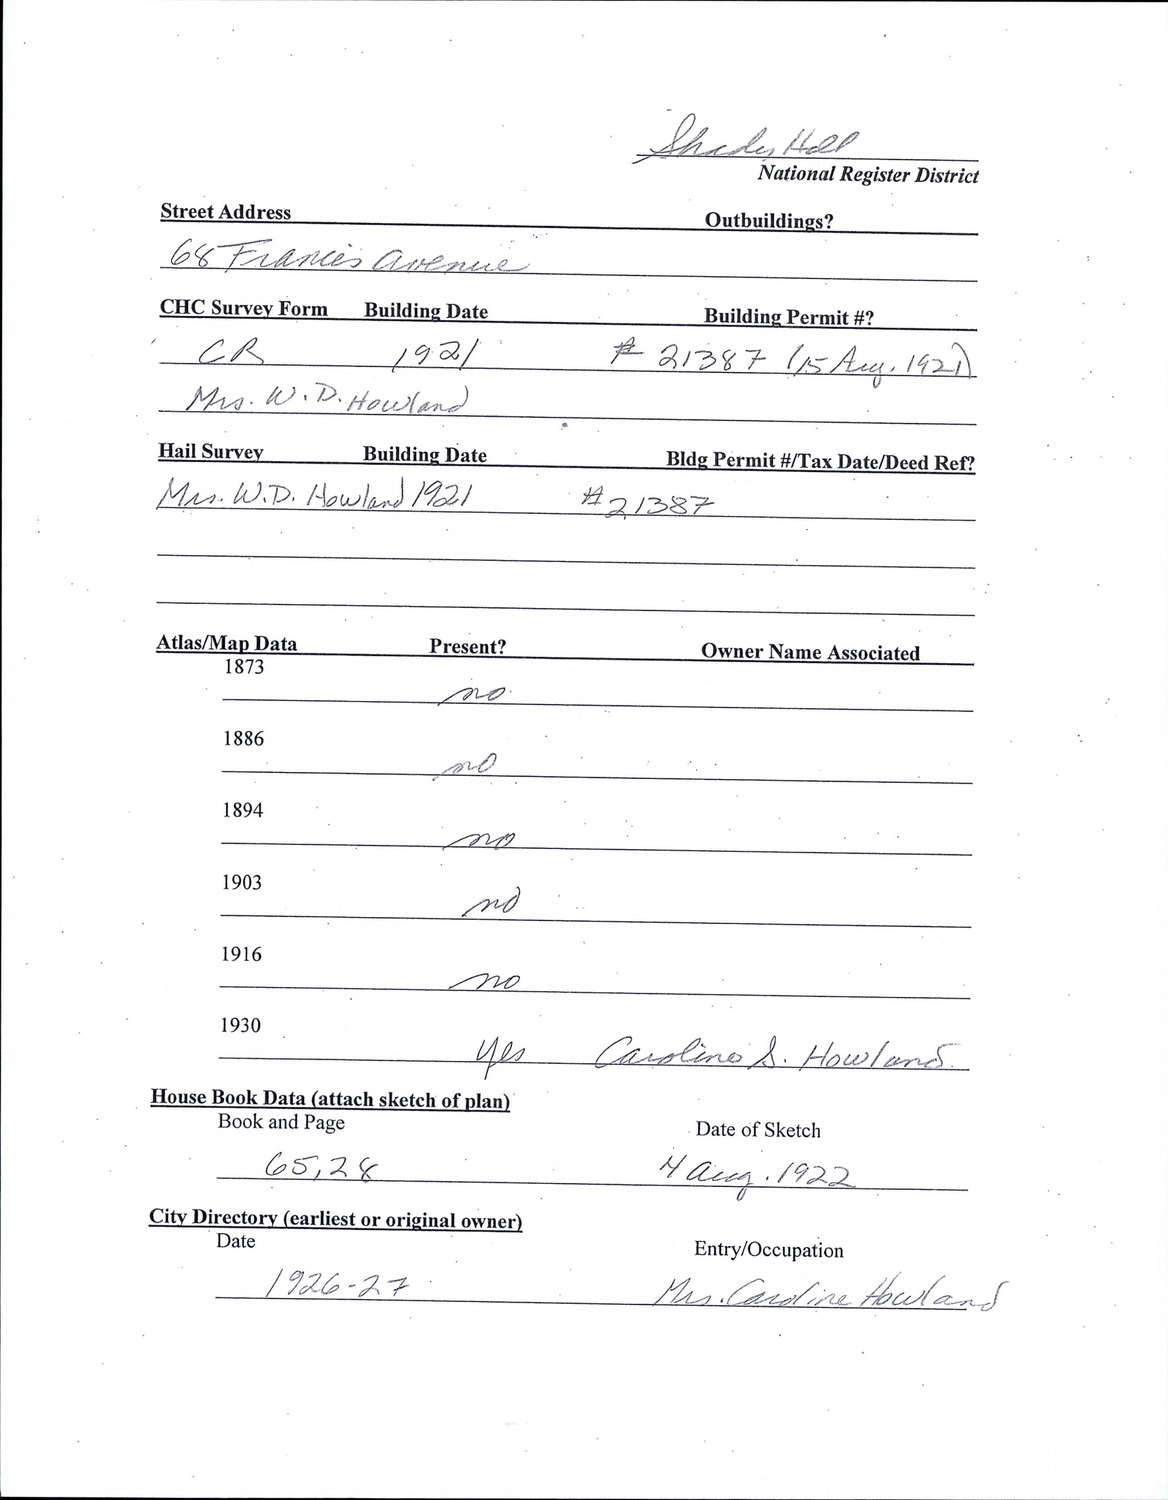 Shady Hill
National Register District
Street Address Outbuildings?
68 Francis Avenue
CHC Survey Form Building Date Building Permit #?
CR 1921 # 21387 (15 Aug. 1921)
Mrs. W. D. Howland
Hail Survey Building Date Bldg Permit #/Tax Date/Deed Ref?
Mrs. W.D. Howland 1921 #21387
Atlas/Map Data Present? Owner Name Associated
1873
no
1886
no
1894
no
1903
no
1916
no
1930
yes Caroline S. Howland
House Book Data (attach sketch of plan)
Book and Page Date of Sketch
65, 28 4 Aug. 1922
City Directory (earliest or original owner)
Date Entry/Occupation
1926-27 Mrs. Caroline Howland